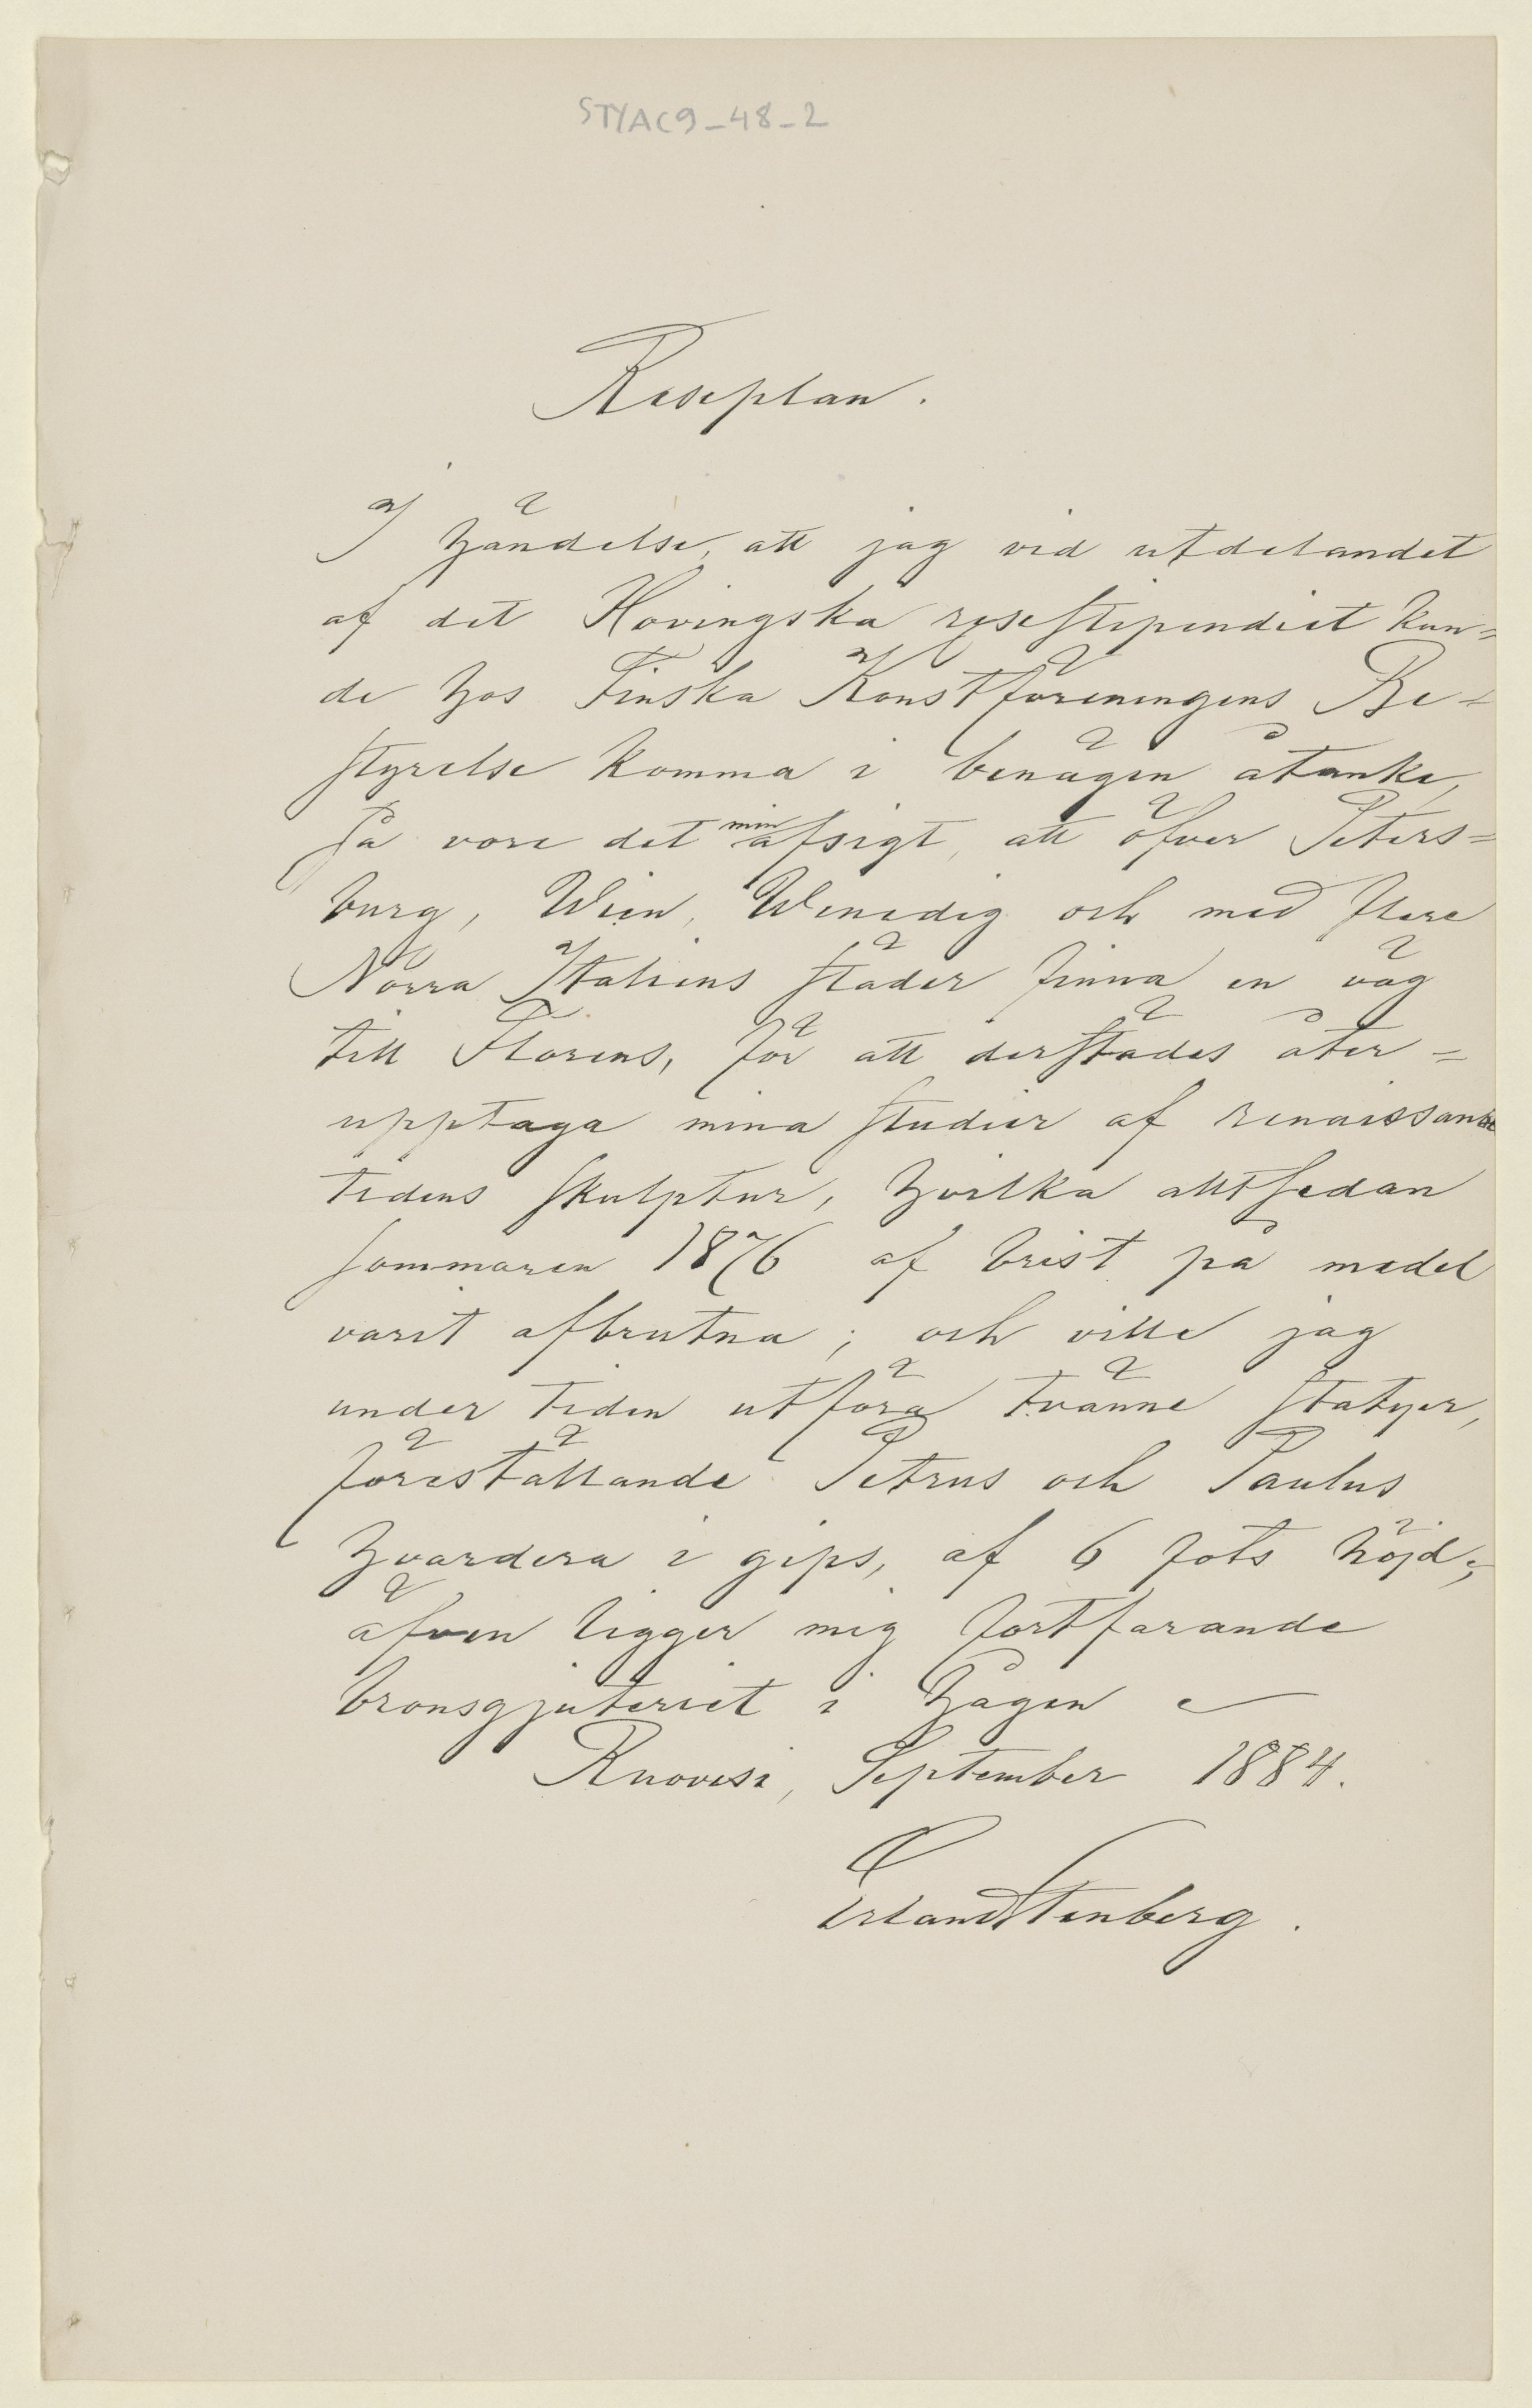 STYAC9_48_2
Reseplan.
I händelse, att jag vid utdelandet
af det Hovingska resestipendiet kun=
de hos Finska Konstföreningens Be=
styrelse komma i benägen åtanke,
så vore det min afsigt, att öfver Peters=
burg, Wien, Wenedig och med flere
Norra Italiens städer finna en väg
till Florens, för att derstädes åter=
upptaga mina studier af renaissance
tidens skulptur, hvilka alltsedan
sommaren 1876 af brist på medel
varit afbrutna; och ville jag
under tiden utföra tvänne statyer,
föreställande Petrus och Paulus
hvardera i gips, af 6 fots höjd;
äfven ligger mig fortfarande
bronsgjuteriet i hågen
Ruovesi, September 1884.
Erland Stenberg.